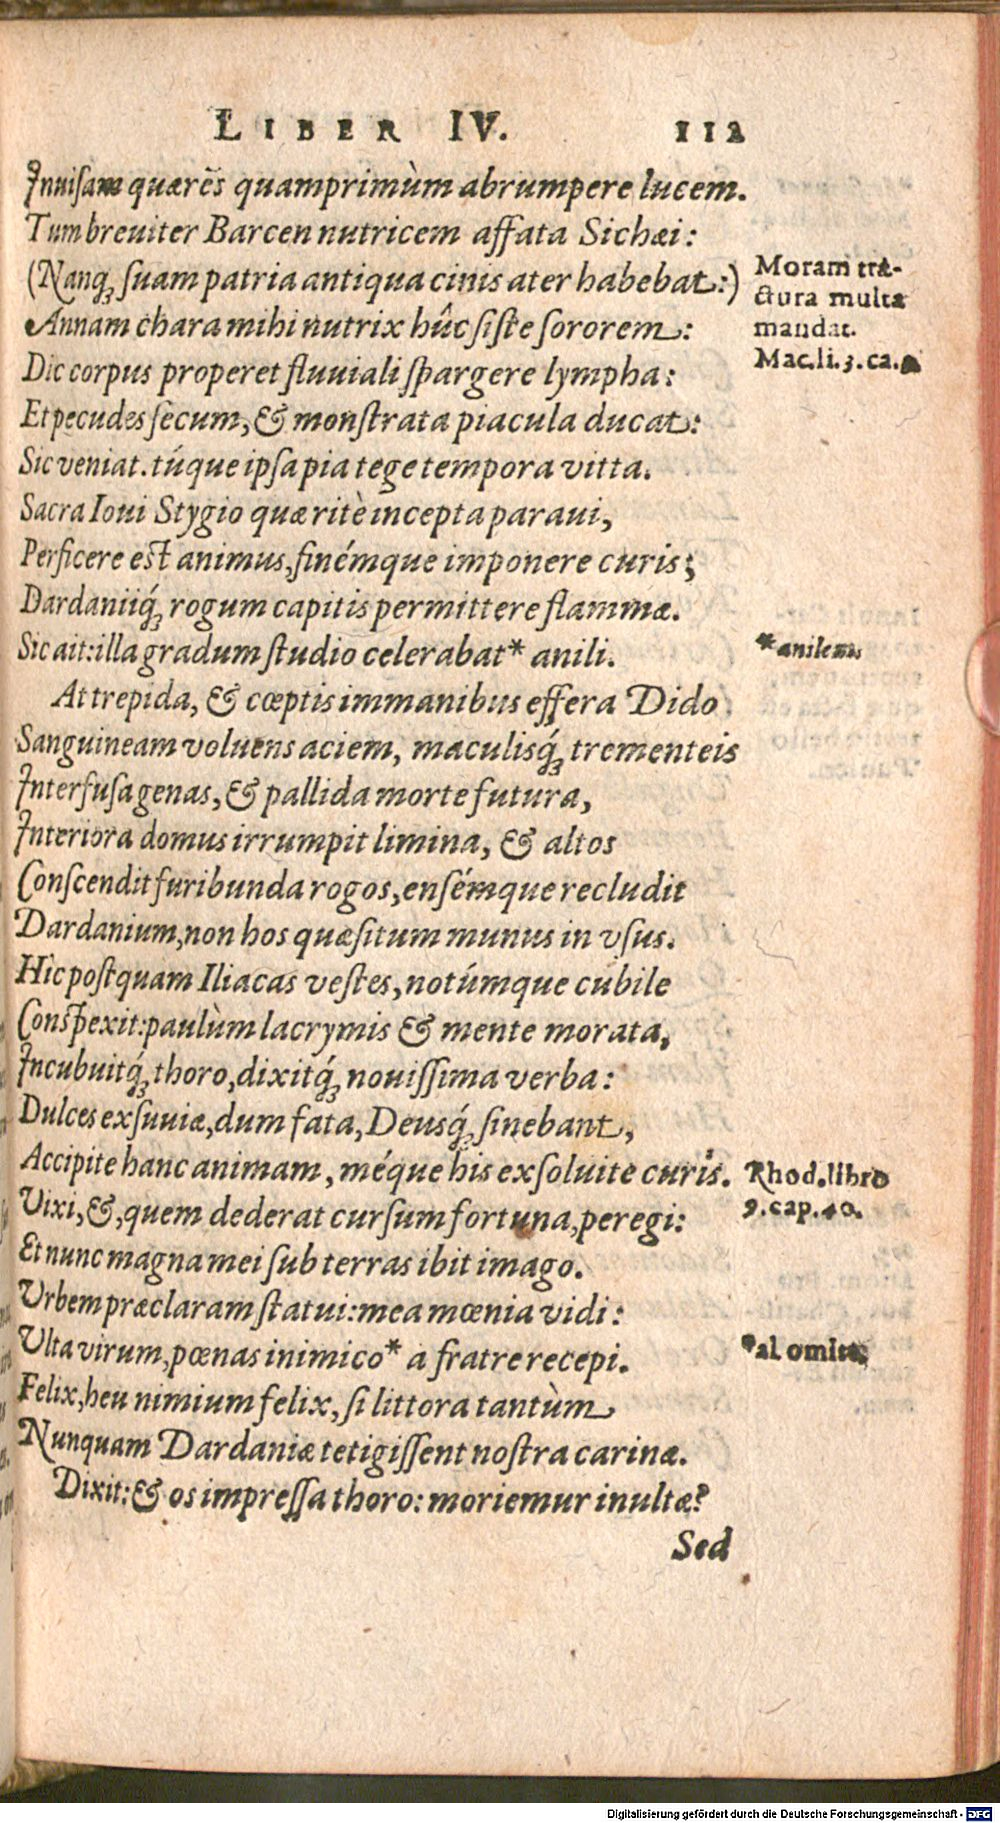 LIBER IV. 112
Inuisam quærēs quamprimùm abrumpere lucem.
Tum breuiter Barcen nutricem affata Sichæi:
(Nanq́; suam patria antiqua cinis ater habebat:)
Annam chara mihi nutrix hûc siste sororem:
Dic corpus properet fluuiali spargere lympha:
Et pecudes secum, & monstrata piacula ducat:
Sic veniat. túque ipsa pia tege tempora vitta.
Sacra Ioui Stygio quæ ritè incepta paraui,
Perficere est animus, finémque imponere curis;
Dardaniiq́; rogum capitis permittere flammæ.
Sic ait: illa gradum studio celerabat* anili.
At trepida, & cœptis immanibus effera Dido
Sanguineam voluens aciem, maculisq́; trementeis
Interfusa genas, & pallida morte futura,
Interiora domus irrumpit limina, & altos
Conscendit furibunda rogos, ensémque recludit
Dardanium, non hos quæsitum munus in vsus.
Hìc postquam Iliacas vestes, notúmque cubile
Conspexit: paulùm lacrymis & mente morata,
Incubuitq́; thoro, dixitq́; nouissima verba:
Dulces exsuuiæ, dum fata, Deusq́; sinebant,
Accipite hanc animam, méque his exsoluite curis.
Vixi, &, quem dederat cursum fortuna, peregi:
Et nunc magna mei sub terras ibit imago.
Vrbem præclaram statui: mea mœnia vidi:
Vlta virum, pœnas inimico* a fratre recepi.
Felix, heu nimium felix, si littora tantùm
Nunquam Dardaniæ tetigissent nostra carinæ.
Dixit: & os impressa thoro: moriemur inultæ?
Sed
Moram tra-
ctura multa
mandat.
Mac. li. 3. ca.
*anilem
Rhod. libro
9. cap. 40.
*al omitt.
Digitalisierung gefördert durch die Deutsche Forschungsgemeinschaft - DFG